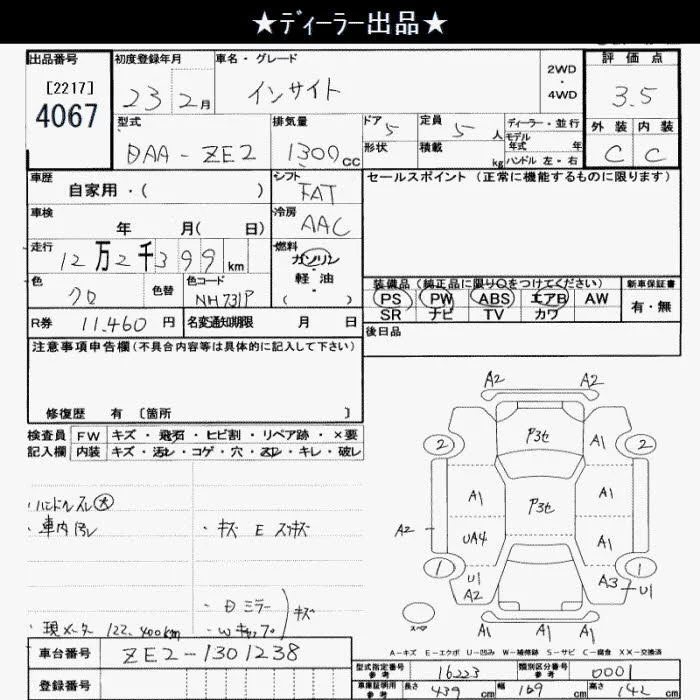 ★ディーラー出品★
出品番号 初度登録年月 車名・グレード 評価点
[2217]
4067
23 2月 インサイト
2WD
・
4WD
3.5
型式 排気量 ドア 定員 ディーラー・並行 外装 内装
DAA-ZE2 1300cc 5 5人 モデル年式 年 C C
形状 積載 kg ハンドル 左・右
車歴 シフト セールスポイント (正常に機能するものに限ります)
自家用・( ) FAT
車検 冷房
年 月( 日) AAC
走行 燃料
12万2千399km ガソリン・軽油
( )
色 色替 色コード
クロ NH731P
装備品(純正品に限り○をつけてください) 新車保証書
PS PW ABS エアB AW 有・無
SR ナビ TV カワ
R券 11,460円 名変通知期限 月 日
後日品
注意事項申告欄(不具合内容等は具体的に記入して下さい)
修復歴 有 〔箇所 〕
検査員 FW キズ・飛石・ヒビ割・リペア跡・×要
記入欄 内装 キズ・汚レ・コゲ・穴・スレ・キレ・破レ
・ハンドルスレ大
・車内汚レ ・キズ E スリキズ
・Dミラー
キズ
・現メーター 122,400km
A2 A2
2 P3セ A1 2
A1 P3セ A1
A2 UA4 A1
1 U1 A2 A3 U1 1
A1 A1 A1
スペア
A-キズ E-エクボ U-凹み W-補修跡 S-サビ C-腐食 XX-交換済
車台番号 ZE2-1301238
型式指定番号 参考 16223 類別区分番号 参考 0001
登録番号
車庫証明用 参考 長さ 439cm 幅 169cm 高さ 142cm